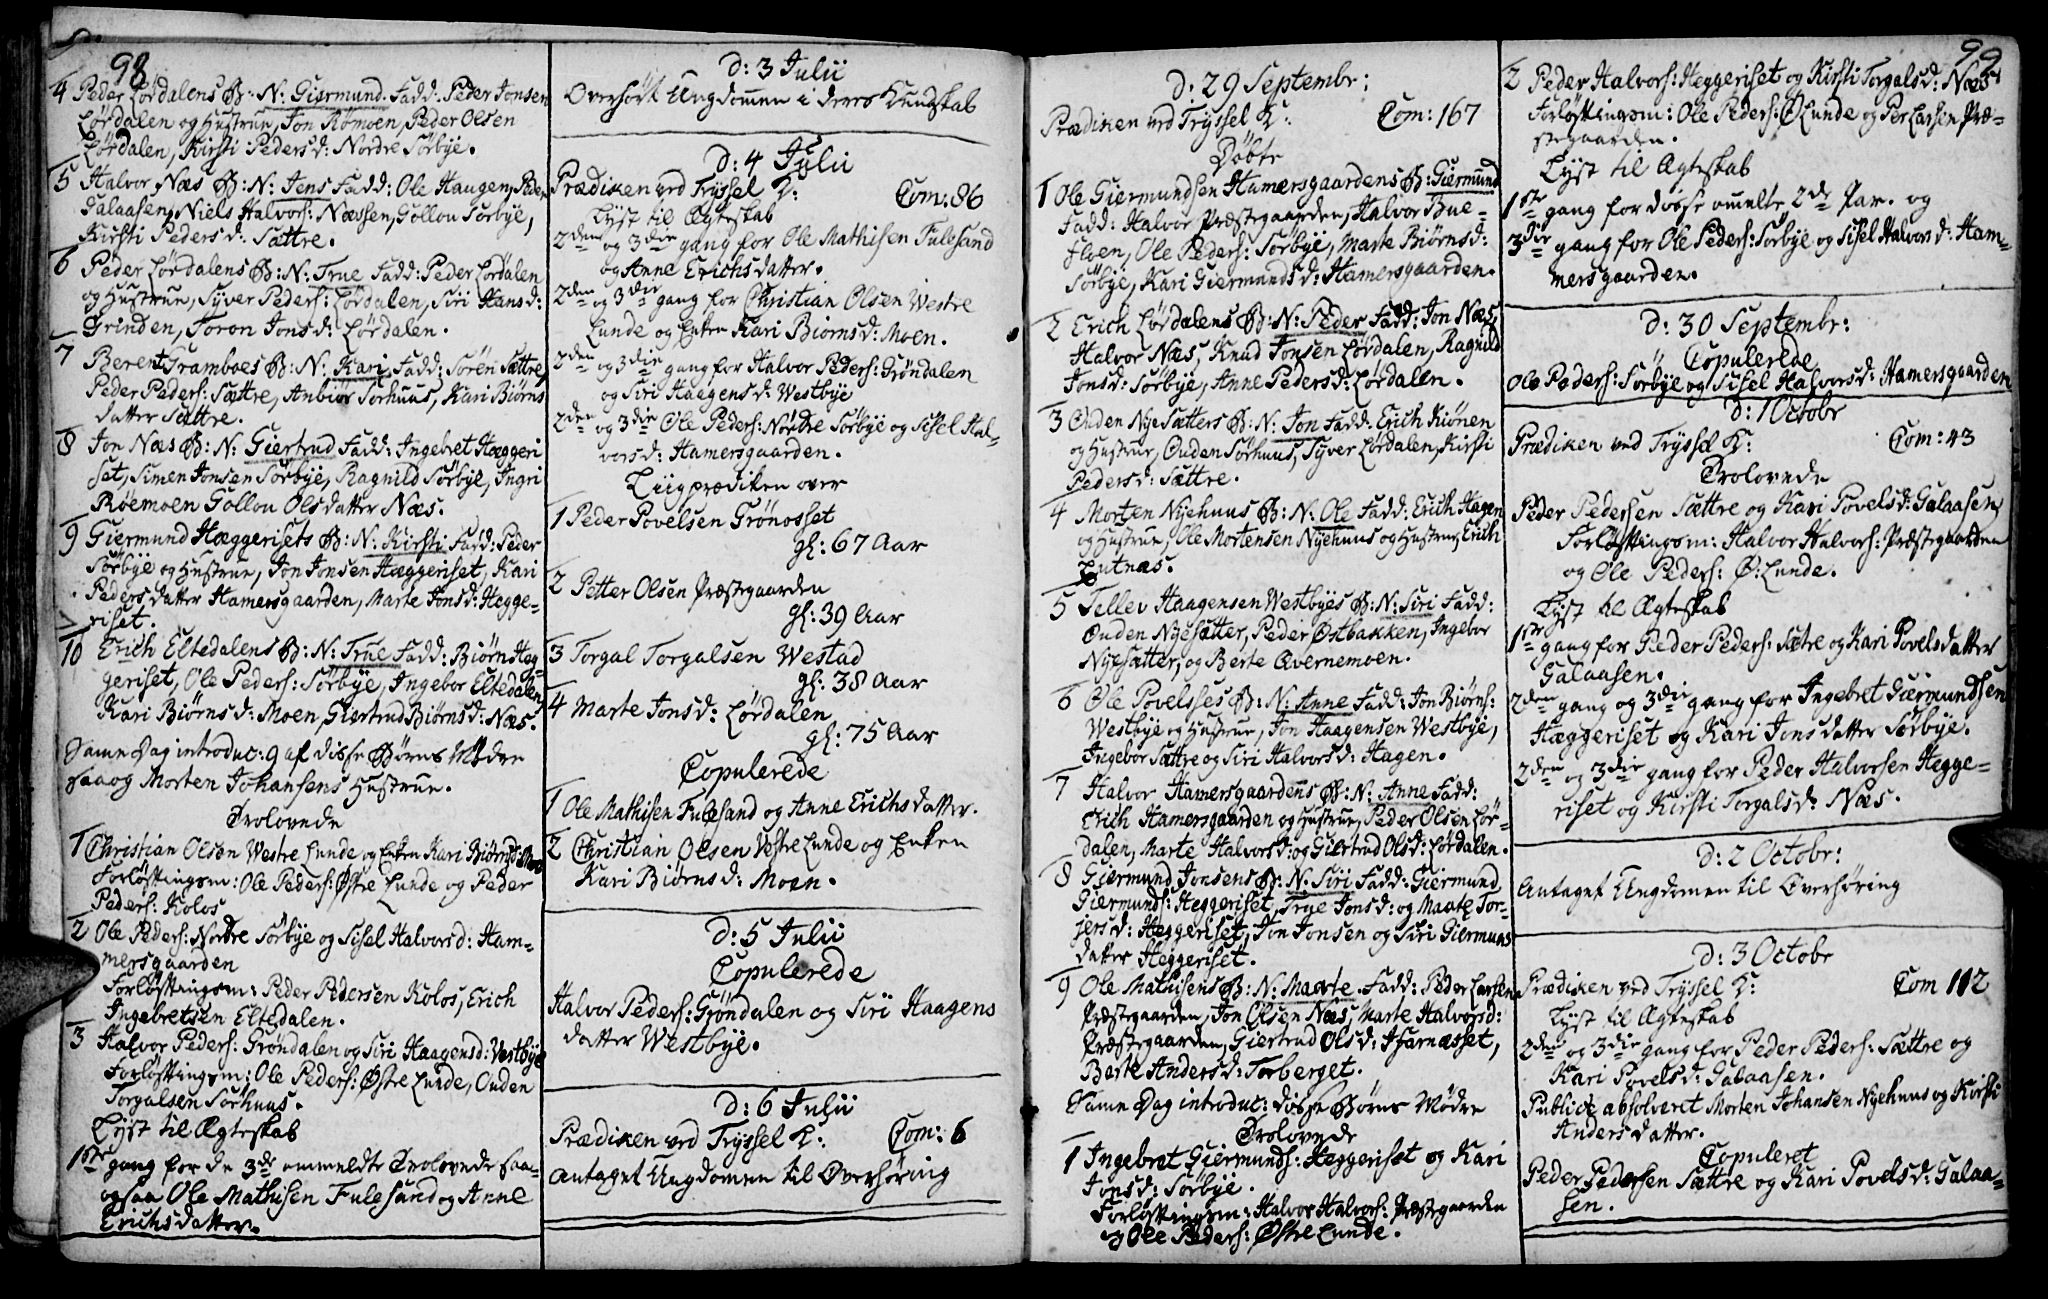 98
4 Peder Lørdalens B: N: Giermund. Fadd: Peder Jonsen
Lørdalen og Hustrue, Jon Römoen, Peder Olsen
Lørdalen, Kirsti Pedersd: Nordre Sörbye.
5 Halvor Næs B: N: Jens Fadd: Ole Haugen, Peder
Galaasen, Niels Halvors: Næssen, Gollou Sorbye,
Kirsti Pedersd: Sættre.
6 Peder Lørdalens B: N: True Fadd: Peder Lørdalen
og Hustrue, Syver Peders: Lørdalen, Siri Hansd:
Grinden, Toron Jonsd: Lørdalen.
7 Berent Tramboes B: N: Kari Fadd: Sören Sættre
Peder Peders: Sættre, Anbiör Sorhuus, Kari Biörns
datter Sættre.
8 Jon Næs B: N: Giertrud Fadd: Ingebret Hæggeri
set, Simen Jonsen Sorbye, Ragnild Sörbye, Ingri
Röemoen Gollou Olsdatter Næs.
9 Giermund Hæggerisets B: N: Kirsti Fadd: Peder
Sörbye og Hustrue, Jon Jonsen Hæggeriset, Kari
Pedersdatter Hamersgaarden, Marte Jonsd: Hegge-
riset.
10 Erich Eltedalens B: N: True Fadd: Biørn Heg-
geriset, Ole Peders: Sörbye, Ingebor Eltedalen,
Kari Biörnsd: Moen, Giertrud Biörnsd: Næs.
Same Dag introduc: 9 af disse Børns Mødre
saa og Morten Johansens Hustrue.
Trolovede
1 Christian Olsen Westre Lunde og Enken Kari Biörnsd: Moen
Forløftingsm: Ole Peders: Østre Lunde og Peder
Peders: Kolos
2 Ole Peders: Nordre Sörbye og Sisel Halvorsd: Ham-
mersgaarden
Forløftingsm: Peder Pedersen Kolos, Erich
Ingebretsen Eltedalen.
3 Halvor Peders: Gröndalen og Siri Haagensd: Westbye
Forløftingsm: Ole Peders: Østre Lunde, Ouden
Torgalsen Sorhuus.
Lyst til Ægteskab
1ste gang for de 3de ommeldte Trolovede saa-
ogsaa Ole Mathisen Fulesand og Anne
Erichsdatter.
d: 3 Julii
Overhørt Ungdommen i deres Kundskab
d: 4 Julii
Prædiken ved Tryssel K: Com: 86
Lyst til Ægteskab
2den og 3die gang for Ole Mathisen Fulesand
og Anne Erichsdatter.
2den og 3die gang for Christian Olsen Westre
Lunde og Enken Kari Biörnsd: Moen.
2den og 3die gang for Halvor Peders: Gröndalen
og Siri Haagensd: Westbye
2den og 3die Ole Peders: Nordre Sörbye og Sisel Hal-
vorsd: Hamersgaarden.
Liigprædiken over
1 Peder Povelsen Grönosset
gl: 67 Aar
2 Petter Olsen Præstegaarden
gl: 39 Aar
3 Torgal Torgalsen Westad
gl: 38 Aar
4 Marte Jonsd: Lørdalen
gl: 75 Aar
Copulerede
1 Ole Mathisen Fulesand og Anne Erichsdatter.
2 Christian Olsen Vestre Lunde og Enken
Kari Biörnsd: Moen.
d: 5 Julii
Copulerede
Halvor Peders: Gröndalen og Siri Haagens
datter Westbye.
d: 6 Julii
Prædiken ved Tryssel K: Com: 6
Antaget Ungdomen til Overhøring
99
d: 29 Septembr:
Prædiken ved Tryssel K: Com: 167
Døbte
1 Ole Giermundsen Hamersgaardens B: Giermund
Fadd: Halvor Præstegaarden, Halvor Bue-
floen, Ole Peders: Sörbye, Marte Biörnsd:
Sörbye, Kari Giermundsd: Hamersgaarden.
2 Erich Lørdalens B: N: Peder Fadd: Jon Næs,
Halvor Næs, Knud Jonsen Lørdalen, Ragnild
Jonsd: Sorbye, Anne Pedersd: Lørdalen.
3 Ouden Nye Sætters B: N: Jon Fadd: Erich Kiönen
og Hustrue, Ouden Sörhuus, Syver Lørdalen, Kirsti
Pedersd: Sættre.
4 Morten Nyehuus B: N: Ole Fadd: Erich Hagen
og Hustrue, Ole Mortensen Nyehuus og Hustrue, Erich
Lutnæs.
5 Tellev Haagensen Westbyes B: N: Siri Fadd:
Ouden Nyesætter, Peder Østbakken, Ingebor
Nyesætter, og Berte Avernemoen.
6 Ole Povelsses B: N: Anne Fadd: Jon Biörns:
Westbye og Hustrue, Jon Haagensen Westbye,
Ingebor Sættre og Siri Halvorsd: Hagen.
7 Halvor Hamersgaardens B: N: Anne Fadd:
Erich Hamersgaarden og Hustrue, Peder Olsen Lør-
dalen, Marte Halvorsd: og Giertrud Olsd: Lørdalen.
8 Giermund Jonsens B: N: Siri Fadd: Giermund
Giermunds: Heggeriset, Trye Jonsd: og Marte Tor-
jersd: Heggeriset, Jon Jonsen og Siri Giermuns
datter Heggeriset.
9 Ole Mathisens B: N: Marte. Fadd: Peder Larsen
Præstegaarden, Jon Olsen Næs, Marte Halvorsd:
Præstegaarden, Giertrud Olsd: Hfarnæsset,
Berte Andersd: Torberget.
Same Dag introduc: disse Børns Mødre
Trolovede
1 Ingebret Giermunds: Heggeriset og Kari
Jonsd: Sørbye.
Forløftingsm: Halvor Halvors: Præstegaarden
og Ole Peders: Østre Lunde.
2 Peder Halvors: Heggeriset og Kirsti Torgalsd: Næs
Forløftingsm: Ole Peders: Ø Lunde og Per Larsen Præ-
stegaarden.
Lyst til Ægteskab
1ste gang for disse omelte 2de Par. og
3die gang for Ole Peders: Sørbye og Sisel Halvorsd: Ham-
mersgaarden.
d: 30 Septembr:
Copulerede
Ole Peders: Sörbye og Sisel Halvorsd: Hamersgaarden
d: 1 Octobr
Prædiken ved Tryssel K: Com: 43
Trolovede
Peder Pedersen Sættre og Kari Povelsd: Galaasen
Forløftingsm: Halvor Halvors: Præstegaarden
og Ole Peders: Ø: Lunde.
Lyst til Ægteskab
1ste gang for Peder Peders: Sætre og Kari Povelsdatter
Galaasen.
2den gang og 3die gang for Ingebret Giermundsen
Hæggeriset og Kari Jonsdatter Sörbye.
2den og 3die gang for Peder Halvorsen Hegge-
riset og Kirsti Torgalsd: Næs.
d: 2 Octobr:
Antaget Ungdomen til Overhøring
d: 3 Octobr
Prædiken ved Tryssel K: Com 112
Lyst til Ægteskab
2den og 3die gang for Peder Peders: Sættre og
Kari Povelsd: Galaasen.
Publice absolveret Morten Johansen Nyehuus og Kirsti
Andersdatter.
Copuleret
Peder Pedersen Sættre og Kari Povelsd: Galaa-
sen.